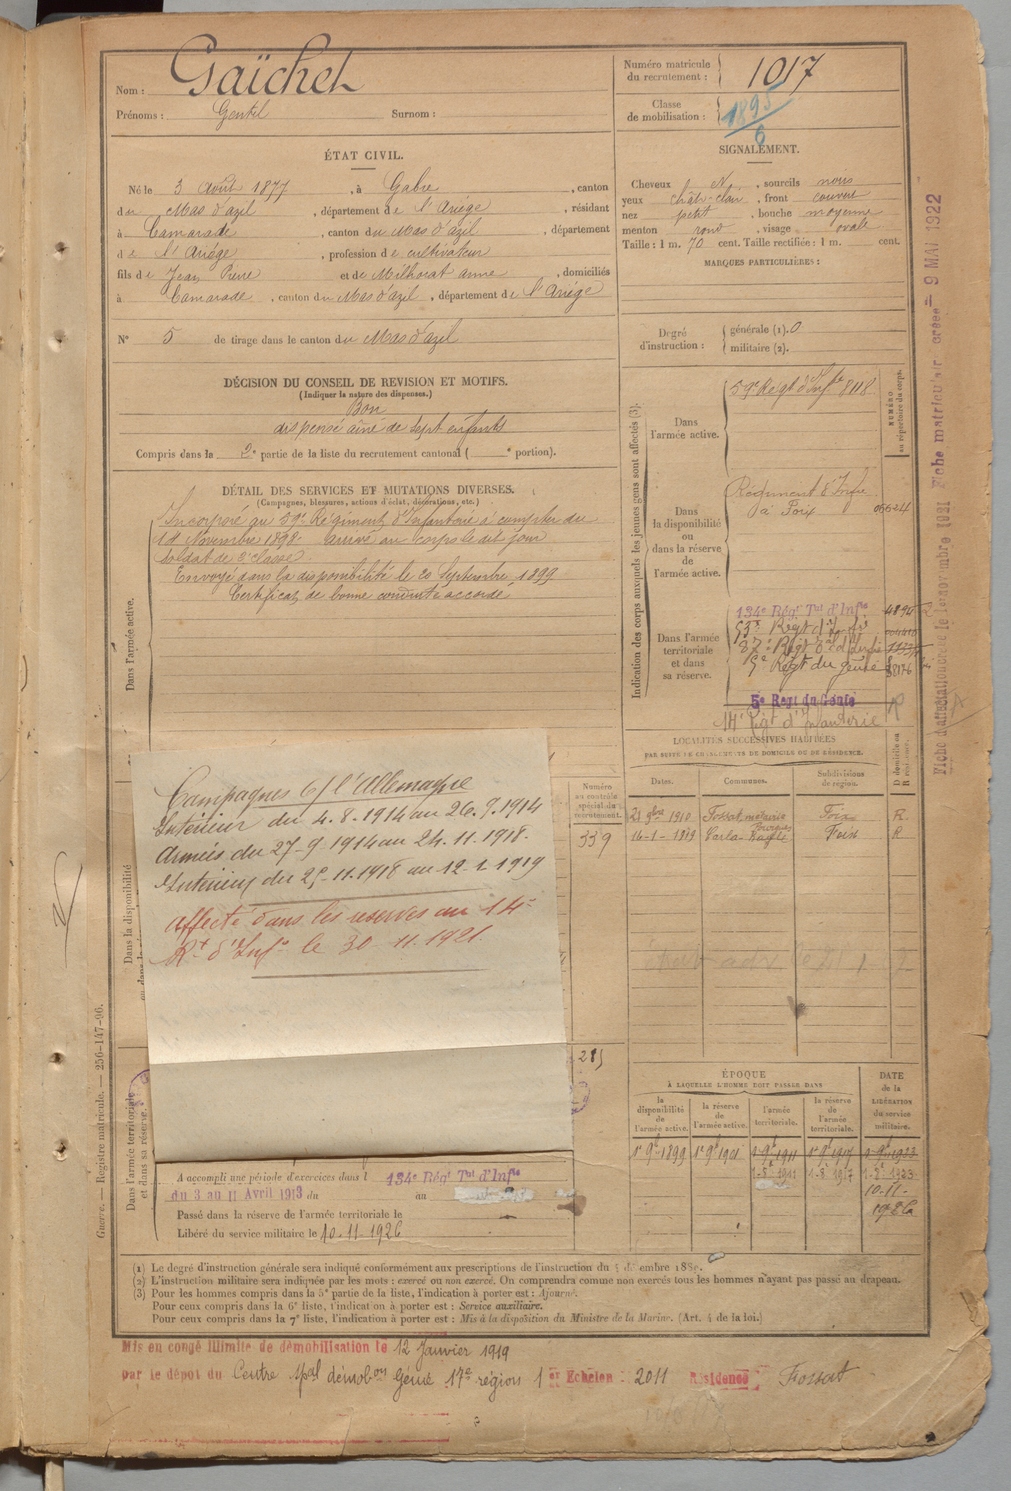 Nom : Gaïchet
Prénoms : Gentil Surnom :
Numéro matricule du recrutement : 1017
Classe de mobilisation : 1895
6
ÉTAT CIVIL.
Né le 3 Août 1877, à Gabre, canton
du Mas d'azil, département de l'Ariége, résidant
à Camarade, canton du Mas d'azil, département
de l'Ariége, profession de cultivateur
fils de Jean Pierre et de Milhorat anne, domiciliés
à Camarade, canton du Mas d'azil, département de l'Ariége
N° 5 de tirage dans le canton du Mas d'azil
SIGNALEMENT.
Cheveux N, sourcils noirs
yeux chât-clair, front couvert
nez petit, bouche moyenne
menton rond, visage ovale
Taille : 1 m. 70 cent. Taille rectifiée : 1 m. cent.
MARQUES PARTICULIÈRES :
Degré d'instruction : générale (1). 0
militaire (2).
DÉCISION DU CONSEIL DE REVISION ET MOTIFS.
(Indiquer la nature des dispenses.)
Bon
dispensé aîné de sept enfants
Compris dans la 2e partie de la liste du recrutement cantonal ( e portion).
DÉTAIL DES SERVICES ET MUTATIONS DIVERSES.
(Campagnes, blessures, actions d'éclat, décorations, etc.)
Dans l'armée active.
Incorporé au 59e Régiment d'Infanterie à compter du
14 Novembre 1898 arrivé au corps le dit jour
soldat de 2e classe
Envoyé dans la disponibilité le 20 Septembre 1899
Certificat de bonne conduite accordé
Indication des corps auxquels les jeunes gens sont affectés (3).
NUMÉRO au répertoire du corps.
Dans l'armée active.
59e Régt d'Infie 8118
Dans la disponibilité ou dans la réserve de l'armée active.
Régiment d'Infie
à Foix
Dans l'armée territoriale et dans sa réserve.
134e Régt Tal d'Infie
5e Régt du génie
5e Régt du Génie
14e Régt d'Infanterie
LOCALITÉS SUCCESSIVES HABITÉES
PAR SUITE DE CHANGEMENTS DE DOMICILE OU DE RÉSIDENCE.
Dates. Communes. Subdivisions de région. D domicile ou R résidence.
21 9bre 1910 Fossat Foix R.
14-1-1919 Carla-Bayle Foix R
Dans la disponibilité
Numéro au contrôle spécial du recrutement.
339
Campagnes c/ l'Allemagne
Intérieur du 4.8.1914 au 26.9.1914
Armées du 27-9-1914 au 24.11.1918.
Intérieur du 25-11-1918 au 12-1-1919
affecté dans les réserves au 14e
Rt d'Infie le 30-11-1921.
Dans l'armée territoriale et dans sa réserve.
A accompli une période d'exercices dans l 134e Régt Tal d'Infie
du 3 au 11 Avril 1913 du au
Passé dans la réserve de l'armée territoriale le
Libéré du service militaire le 10-11-1926
ÉPOQUE
À LAQUELLE L'HOMME DOIT PASSER DANS
la disponibilité de l'armée active. la réserve de l'armée active. l'armée territoriale. la réserve de l'armée territoriale. DATE de la LIBÉRATION du service militaire.
1er 9e 1899 1er 9e 1901 1-9e 1911 1er 9e 1917 1-9e 1923
1-8e 1911 1-8 1917 1-8e 1923
10-11-
1926
(1) Le degré d'instruction générale sera indiqué conformément aux prescriptions de l'instruction du
(2) L'instruction militaire sera indiquée par les mots : exercé ou non exercé. On comprendra comme non exercés tous les hommes n'ayant pas passé au drapeau.
(3) Pour les hommes compris dans la 5e partie de la liste, l'indication à porter est : Ajourné.
Pour ceux compris dans la 6e liste, l'indication à porter est : Service auxiliaire.
Pour ceux compris dans la 7e liste, l'indication à porter est : Mis à la disposition du Ministre de la Marine. (Art. 4 de la loi.)
Mis en congé illimité de démobilisation le 12 Janvier 1919
par le dépôt du Centre démobon Génie 17e région 1er Echelon : 2011 Résidence Fossat
Guerre. — Registre matricule. — 256-147-96.
Fiche matriculaire créée 9 MAI 1922